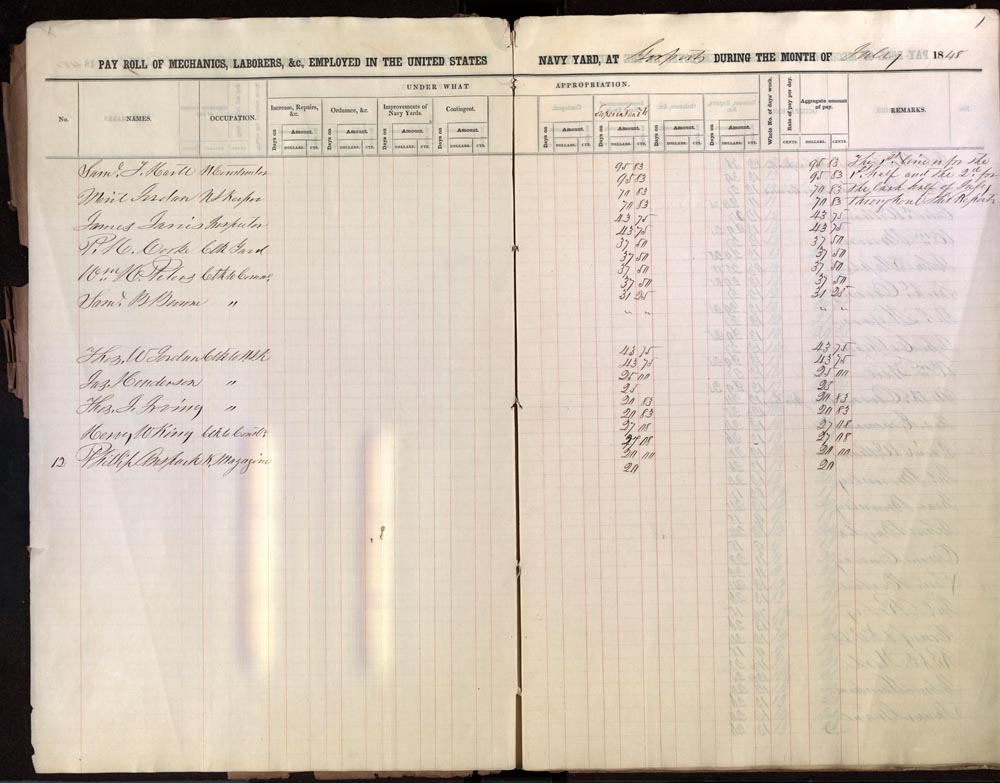 1
PAY ROLL OF MECHANICS, LABORERS, &c., EMPLOYED IN THE UNITED STATES NAVY YARD, AT Gosport DURING THE MONTH OF July 1848
UNDER WHAT APPROPRIATION.
No. NAMES. OCCUPATION. Increase, Repairs, &c. Ordnance, &c. Improvements of Navy Yards. Contingent. Whole No. of days' work. Rate of pay per day. Aggregate amount of pay. REMARKS.
Days on Amount. Days on Amount. Days on Amount. Days on Amount. Amount.
DOLLARS. CTS. DOLLARS. CTS. DOLLARS. CTS. DOLLARS. CTS. DOLLARS. CTS. CENTS. DOLLARS. CENTS.
Saml. T. Hartt N Constructor 95 83 95 83 The 1st line is for the
95 83 95 83 1st half and the 2d for
Jordan N S Keeper 70 83 70 83 the last half of July
70 83 70 83 throughout this Report
James Jarvis Inspector 43 75 43 75
43 75 43 75
P. H. Cooke Clk Yard 37 50 37 50
37 50 37 50
Wm H. Peters Clk to Comm. 37 50 37 50
37 50 37 50
Saml. B Browne " 31 25 31 25
" " " "
Thos. W Jordan Clk to N S K 43 75 43 75
43 75 43 75
Jas. Henderson " 25 00 25 00
25 25
Thos. J. Irving " 20 83 20 83
20 83 20 83
Henry W King Clk to Const. 27 08 27 08
27 08 27 08
12 Phillip K. Magazine 20 00 20 00
20 20